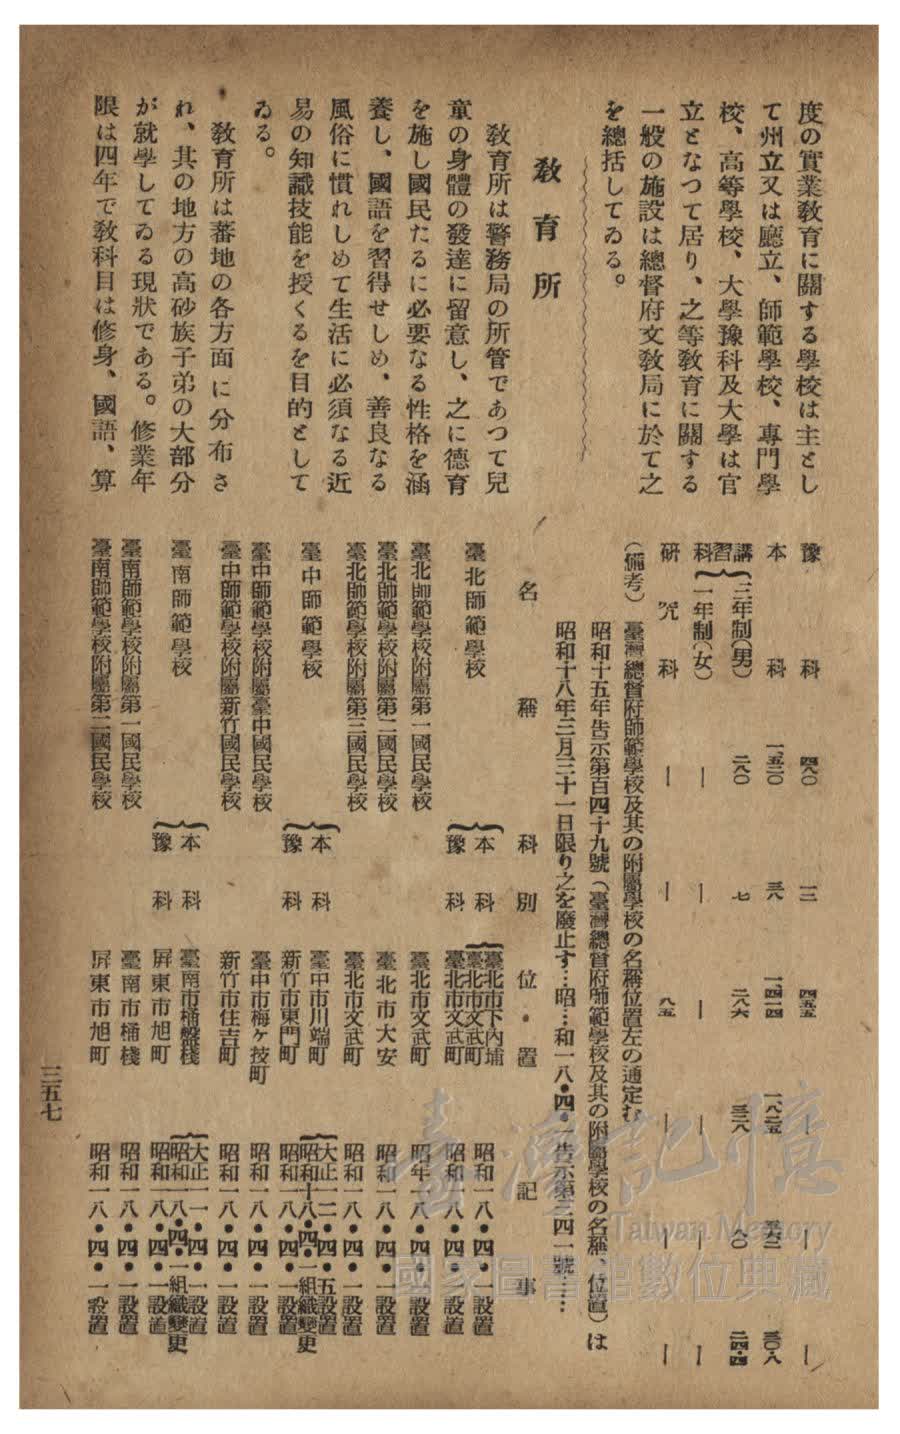 度の實業敎育に關する學校は主とし
て州立又は廳立、師範學校、專門學
校、高等學校、大學豫科及大學は官
立となつて居り、之等敎育に關する
一般の施設は總督府文敎局に於て之
を總括してゐる。
敎育所
敎育所は警務局の所管であつて兒
童の身體の發達に留意し、之に德育
を施し國民たるに必要なる性格を涵
養し、國語を習得せしめ、善良なる
風俗に慣れしめて生活に必須なる近
易の知識技能を授くるを目的として
ゐる。
敎育所は蕃地の各方面に分布さ
れ、其の地方の高砂族子弟の大部分
が就學してゐる現狀である。修業年
限は四年で敎科目は修身、國語、算
豫科 四八〇 一三 四五五 — — —
本科 一、五二〇 三八 一、四一四 一、八二五 三〇・八
講習科 三年制(男) 二八〇 七 二八六 三三八 八〇 二四・四
一年制(女) — — — — — —
研究科 — — 八五 — — —
(備考) 臺灣總督府師範學校及其の附屬學校の名稱位置左の通定む
昭和十五年告示第百四十九號(臺灣總督府師範學校及其の附屬學校の名稱、位置)は
昭和十八年三月三十一日限り之を廢止す…昭…和一八・四・一告示第三四一號……
名稱 科別 位置 記事
臺北師範學校 本科 臺北市下內埔 臺北市文武町 昭和一八・四・一設置
豫科 臺北市文武町 昭和一八・四・一設置
臺北師範學校附屬第一國民學校 臺北市文武町 昭年一八・四・一設置
臺北師範學校附屬第二國民學校 臺北市大安 昭和一八・四・一設置
臺北師範學校附屬第三國民學校 臺北市文武町 昭和一八・四・一設置
臺中師範學校 本科 臺中市川端町 大正一二・四・五設置 昭和十八・四・一組織變更
豫科 新竹市東門町 昭和一八・四・一設置
臺中師範學校附屬臺中國民學校 臺中市梅ヶ技町 昭和一八・四・一設置
臺中師範學校附屬新竹國民學校 新竹市住吉町 昭和一八・四・一設置
臺南師範學校 本科 臺南市桶盤棧 大正一一・四・一設置 昭和一八・四・一組織變更
豫科 屛東市旭町 昭和一八・四・一設置
臺南師範學校附屬第一國民學校 臺南市桶棧 昭和一八・四・一設置
臺南師範學校附屬第二國民學校 屛東市旭町 昭和一八・四・一設置
三五七
臺灣記憶
Taiwan Memory
國家圖書館數位典藏